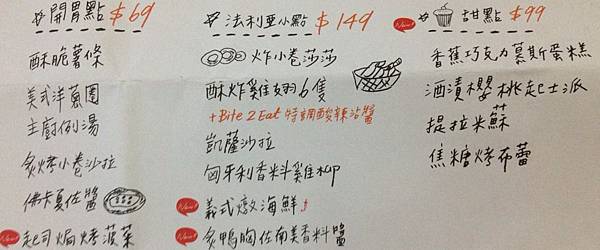 開胃點 $69
酥脆薯條
美式洋蔥圈
主廚例湯
炙烤小卷沙拉
佛卡夏佐醬
New 起司焗烤菠菜
法利亞小點 $149
炸小卷莎莎
酥炸雞翅6隻
+Bite 2 Eat 特調酸辣沾醬
凱薩沙拉
匈牙利香料雞杯cup
New 義式燉海鮮
New 炙鴨胸佐南美香料醬
New 甜點 $99
香蕉巧克力慕斯蛋糕
酒漬櫻桃起士派
提拉米蘇
焦糖烤布蕾